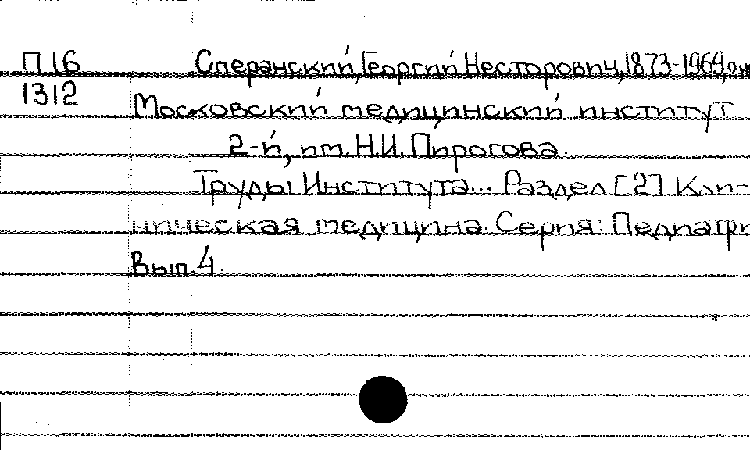 П 16 Сперанский, Георгий Несторович, 1873-1969,
1312 Московский медицинский институт
2-й, им. Н.И. Пирогова.
Труды Института... Раздел [2] Кли-
ническая медицина. Серия: Педиатри
Вып. 4.